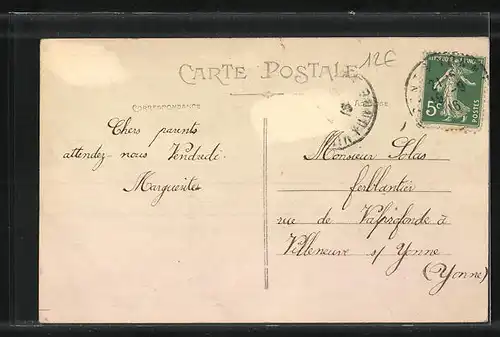 12€
CARTE POSTALE
CORRESPONDANCE
Chers parents
attendez-nous Vendredi.
Marguerite
Monsieur Solas
ferblantier
rue de Valprofonde à
Villeneuve s/ Yonne
(Yonne)
5c
POSTES